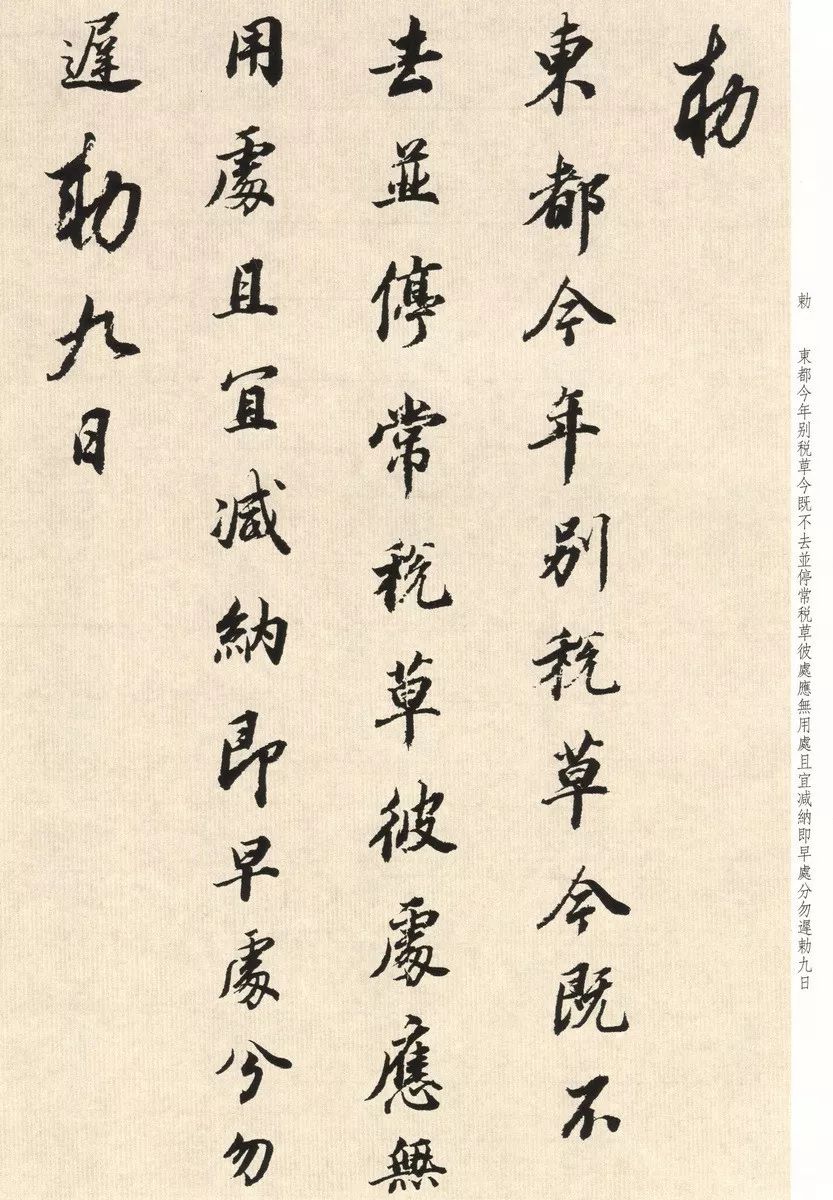 勅
東都今年別税草今既不
去並停常税草彼處應無
用處且宜減納即早處分勿
遲勅九日
勅 東都今年别税草今既不去並停常税草彼處應無用處且宜减納即早處分勿遲勅九日